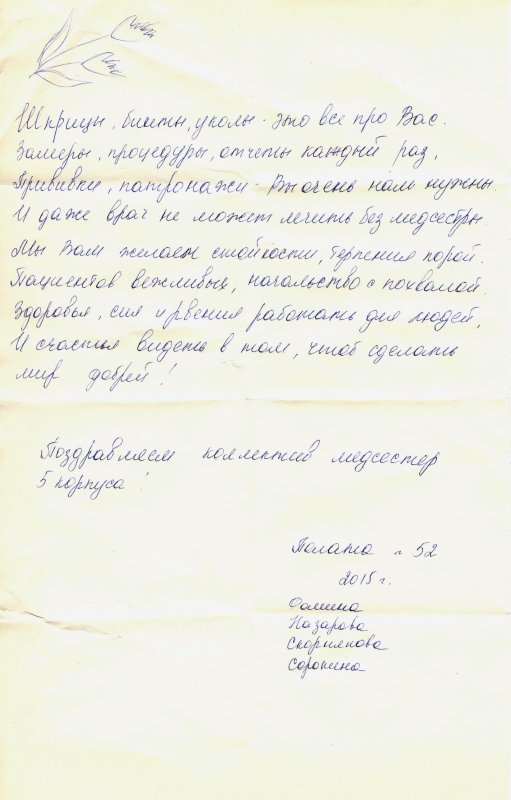 Шприцы, бинты, уколы - это все про Вас.
Замеры, процедуры, отчеты каждый раз,
Прививки, патронажи - Вы очень нам нужны
И даже врач не может лечить без медсестры.
Мы Вам желаем стойкости, терпения порой.
Пациентов вежливых, начальство с похвалой.
Здоровья, сил и рвения работать для людей,
И счастья видеть в том, чтоб сделать
мир добрей!
Поздравляем коллектив медсестер
5 корпуса!
Палата 52
2015 г.
Фомина
Назарова
Скорнякова
Сорокина